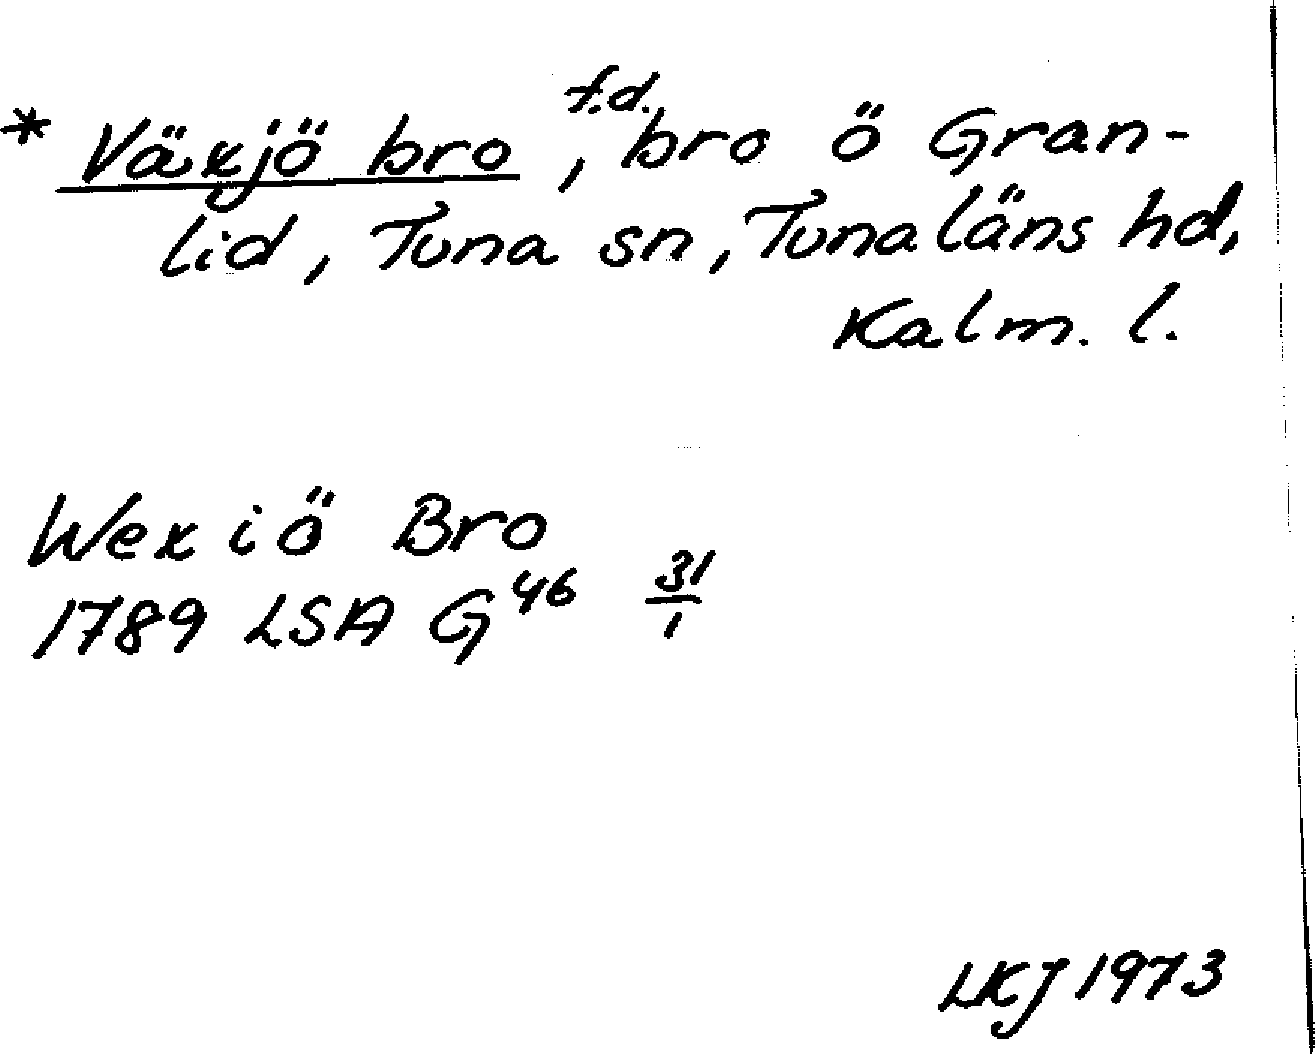 * Växjö bro, f.d. bro ö Gran-
lid, Tuna sn, Tunaläns hd,
Kalm. l.
Wexiö Bro
1789 LSA G46 31/1
LKJ 1973